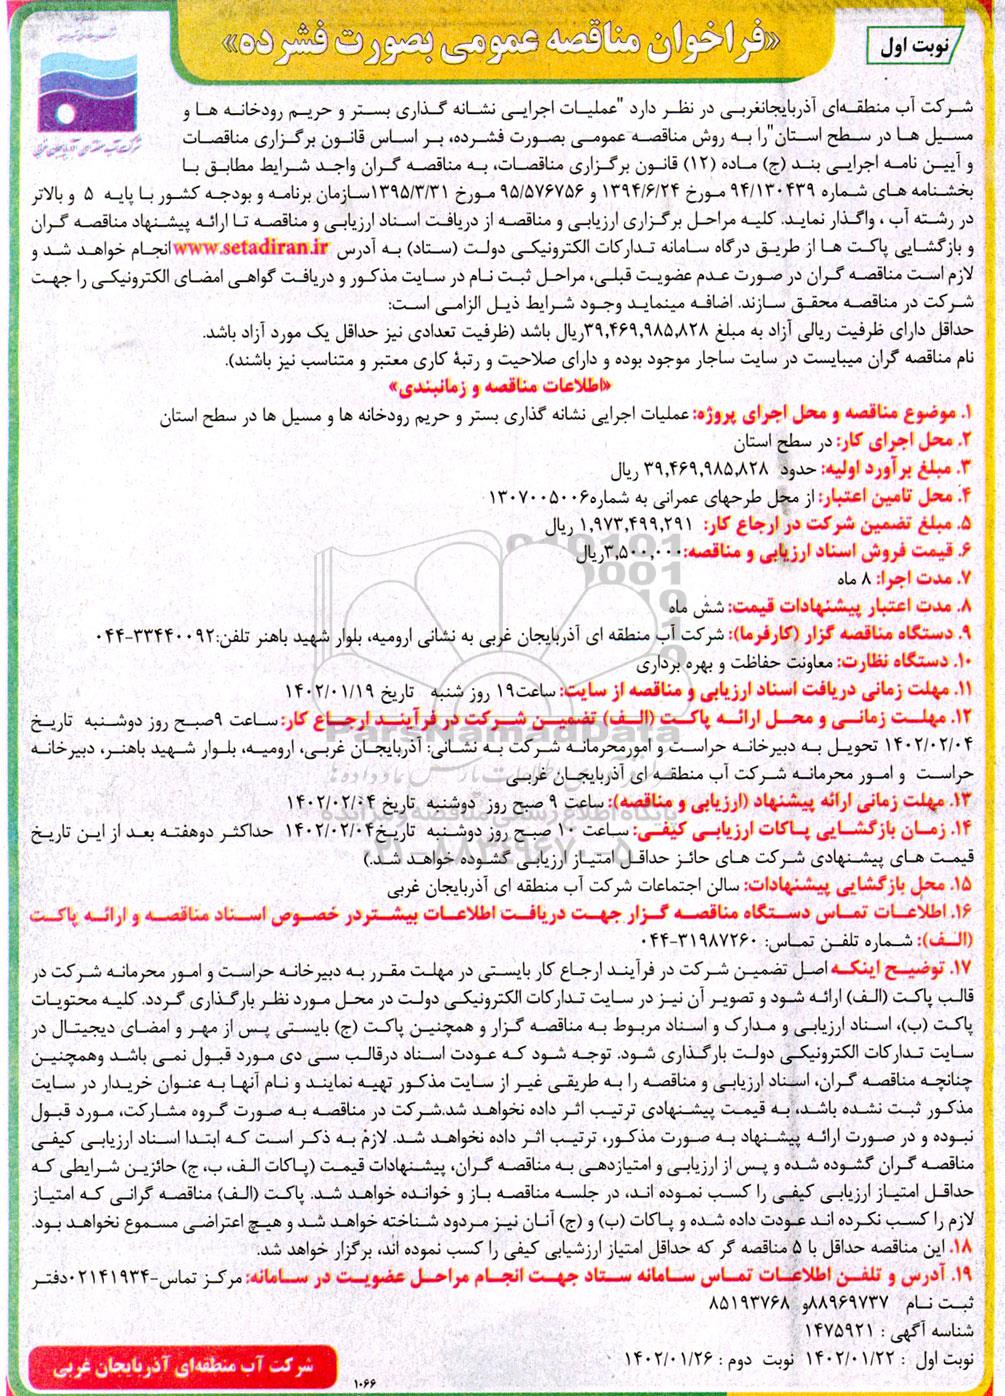 نوبت اول
«فراخوان مناقصه عمومی بصورت فشرده»
شرکت آب منطقه‌ای آذربایجانغربی در نظر دارد "عملیات اجرایی نشانه گذاری بستر و حریم رودخانه ها و
مسیل ها در سطح استان"را به روش مناقصه عمومی بصورت فشرده، بر اساس قانون برگزاری مناقصات
و آیین نامه اجرایی بند (ج) ماده (۱۲) قانون برگزاری مناقصات، به مناقصه گران واجد شرایط مطابق با
بخشنامه های شماره ۹۴/۱۳۰۴۳۹ مورخ ۱۳۹۴/۶/۲۴ و ۹۵/۵۷۶۷۵۶ مورخ ۱۳۹۵/۳/۳۱سازمان برنامه و بودجه کشور با پایه ۵ و بالاتر
در رشته آب ، واگذار نماید. کلیه مراحل برگزاری ارزیابی و مناقصه از دریافت اسناد ارزیابی و مناقصه تا ارائه پیشنهاد مناقصه گران
و بازگشایی پاکت ها از طریق درگاه سامانه تدارکات الکترونیکی دولت (ستاد) به آدرس www.setadiran.ir انجام خواهد شد و
لازم است مناقصه گران در صورت عدم عضویت قبلی، مراحل ثبت نام در سایت مذکور و دریافت گواهی امضای الکترونیکی را جهت
شرکت در مناقصه محقق سازند. اضافه مینماید وجود شرایط ذیل الزامی است:
حداقل دارای ظرفیت ریالی آزاد به مبلغ ۳۹,۴۶۹,۹۸۵,۸۲۸ریال باشد (ظرفیت تعدادی نیز حداقل یک مورد آزاد باشد.
نام مناقصه گران میبایست در سایت ساجار موجود بوده و دارای صلاحیت و رتبهٔ کاری معتبر و متناسب نیز باشند).
«اطلاعات مناقصه و زمانبندی»
۱. موضوع مناقصه و محل اجرای پروژه: عملیات اجرایی نشانه گذاری بستر و حریم رودخانه ها و مسیل ها در سطح استان
۲. محل اجرای کار: در سطح استان
۳. مبلغ برآورد اولیه: حدود ۳۹,۴۶۹,۹۸۵,۸۲۸ ریال
۴. محل تامین اعتبار: از محل طرحهای عمرانی به شماره۱۳۰۷۰۰۵۰۰۶
۵. مبلغ تضمین شرکت در ارجاع کار: ۱,۹۷۳,۴۹۹,۲۹۱ ریال
۶. قیمت فروش اسناد ارزیابی و مناقصه:۳,۵۰۰,۰۰۰ریال
۷. مدت اجرا: ۸ ماه
۸. مدت اعتبار پیشنهادات قیمت: شش ماه
۹. دستگاه مناقصه گزار (کارفرما): شرکت آب منطقه ای آذربایجان غربی به نشانی ارومیه، بلوار شهید باهنر تلفن:۳۳۴۴۰۰۹۲-۰۴۴
۱۰. دستگاه نظارت: معاونت حفاظت و بهره برداری
۱۱. مهلت زمانی دریافت اسناد ارزیابی و مناقصه از سایت: ساعت۱۹ روز شنبه تاریخ ۱۴۰۲/۰۱/۱۹
۱۲. مهلت زمانی و محل ارائه پاکت (الف) تضمین شرکت در فرآیند ارجاع کار: ساعت ۹صبح روز دوشنبه تاریخ
۱۴۰۲/۰۲/۰۴ تحویل به دبیرخانه حراست و امورمحرمانه شرکت به نشانی: آذربایجان غربی، ارومیه، بلوار شهید باهنر، دبیرخانه
حراست و امور محرمانه شرکت آب منطقه ای آذربایجان غربی
۱۳. مهلت زمانی ارائه پیشنهاد (ارزیابی و مناقصه): ساعت ۹ صبح روز دوشنبه تاریخ ۱۴۰۲/۰۲/۰۴
۱۴. زمان بازگشایی پاکات ارزیابی کیفی: ساعت ۱۰ صبح روز دوشنبه تاریخ۱۴۰۲/۰۲/۰۴ حداکثر دوهفته بعد از این تاریخ
قیمت های پیشنهادی شرکت های حائز حداقل امتیاز ارزیابی گشوده خواهد شد.)
۱۵. محل بازگشایی پیشنهادات: سالن اجتماعات شرکت آب منطقه ای آذربایجان غربی
۱۶. اطلاعات تماس دستگاه مناقصه گزار جهت دریافت اطلاعات بیشتردر خصوص اسناد مناقصه و ارائه پاکت
(الف): شماره تلفن تماس: ۳۱۹۸۷۲۶۰-۰۴۴
۱۷. توضیح اینکه اصل تضمین شرکت در فرآیند ارجاع کار بایستی در مهلت مقرر به دبیرخانه حراست و امور محرمانه شرکت در
قالب پاکت (الف) ارائه شود و تصویر آن نیز در سایت تدارکات الکترونیکی دولت در محل مورد نظر بارگذاری گردد. کلیه محتویات
پاکت (ب)، اسناد ارزیابی و مدارک و اسناد مربوط به مناقصه گزار و همچنین پاکت (ج) بایستی پس از مهر و امضای دیجیتال در
سایت تدارکات الکترونیکی دولت بارگذاری شود. توجه شود که عودت اسناد درقالب سی دی مورد قبول نمی باشد وهمچنین
چنانچه مناقصه گران، اسناد ارزیابی و مناقصه را به طریقی غیر از سایت مذکور تهیه نمایند و نام آنها به عنوان خریدار در سایت
مذکور ثبت نشده باشد، به قیمت پیشنهادی ترتیب اثر داده نخواهد شد.شرکت در مناقصه به صورت گروه مشارکت، مورد قبول
نبوده و در صورت ارائه پیشنهاد به صورت مذکور، ترتیب اثر داده نخواهد شد. لازم به ذکر است که ابتدا اسناد ارزیابی کیفی
مناقصه گران گشوده شده و پس از ارزیابی و امتیازدهی به مناقصه گران، پیشنهادات قیمت (پاکات الف، ب، ج) حائزین شرایطی که
حداقل امتیاز ارزیابی کیفی را کسب نموده اند، در جلسه مناقصه باز و خوانده خواهد شد. پاکت (الف) مناقصه گرانی که امتیاز
لازم را کسب نکرده اند عودت داده شده و پاکات (ب) و (ج) آنان نیز مردود شناخته خواهد شد و هیچ اعتراضی مسموع نخواهد بود.
۱۸. این مناقصه حداقل با ۵ مناقصه گر که حداقل امتیاز ارزشیابی کیفی را کسب نموده اند، برگزار خواهد شد.
۱۹. آدرس و تلفن اطلاعات تماس سامانه ستاد جهت انجام مراحل عضویت در سامانه: مرکز تماس-۰۲۱۴۱۹۳۴دفتر
ثبت نام ۸۸۹۶۹۷۳۷و ۸۵۱۹۳۷۶۸
شناسه آگهی : ۱۴۷۵۹۲۱
نوبت اول : ۱۴۰۲/۰۱/۲۲ نوبت دوم : ۱۴۰۲/۰۱/۲۶
شرکت آب منطقه‌ای آذربایجان غربی
۱۰۶۶
ParsNamadData